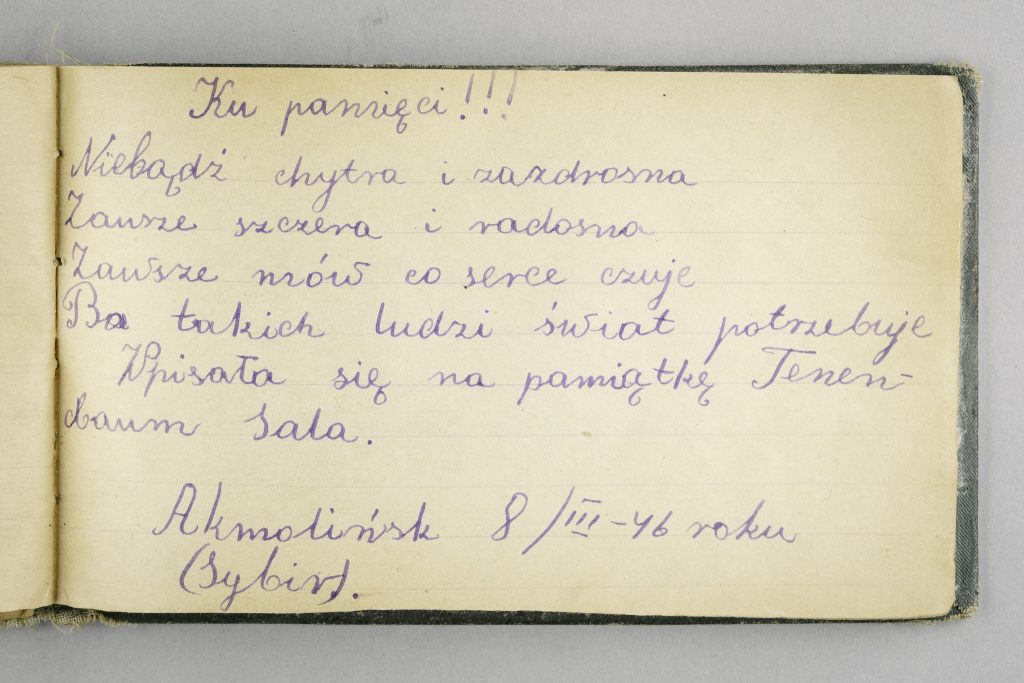 Ku pamięci!!!
Niebądź chytra i zazdrosna
Zawsze szczera i radosna
Zawsze mów co serce czuje
Bo takich ludzi świat potrzebuje
Wpisała się na pamiątkę Tenen-
baum Sala.
Akmolińsk 8/III-46 roku
(Sybir).